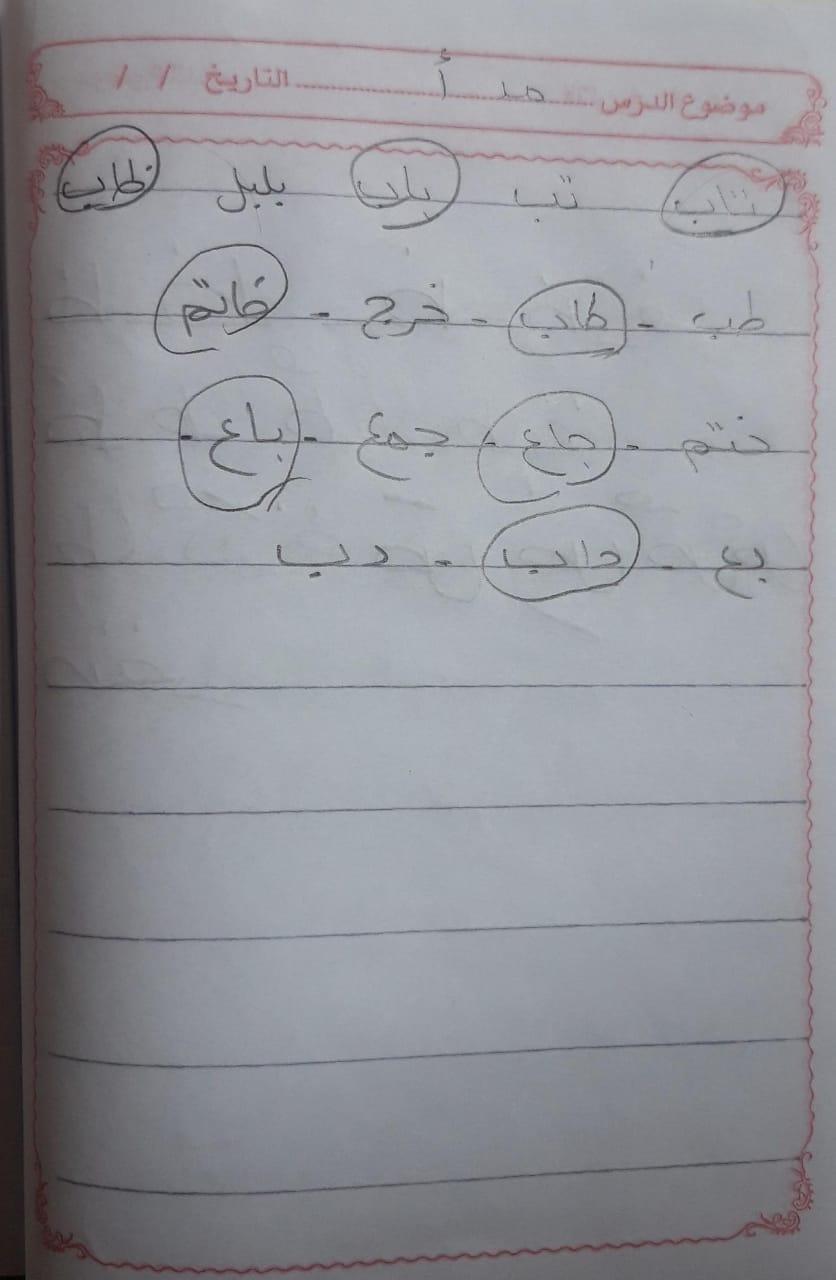 موضوع الدرس مد أ التاريخ / /
تاب تب باب بلبل ظاب
طب - طاب - خرج - خاتم
ختم - جاع - جمع - باع -
بع - داب - دب